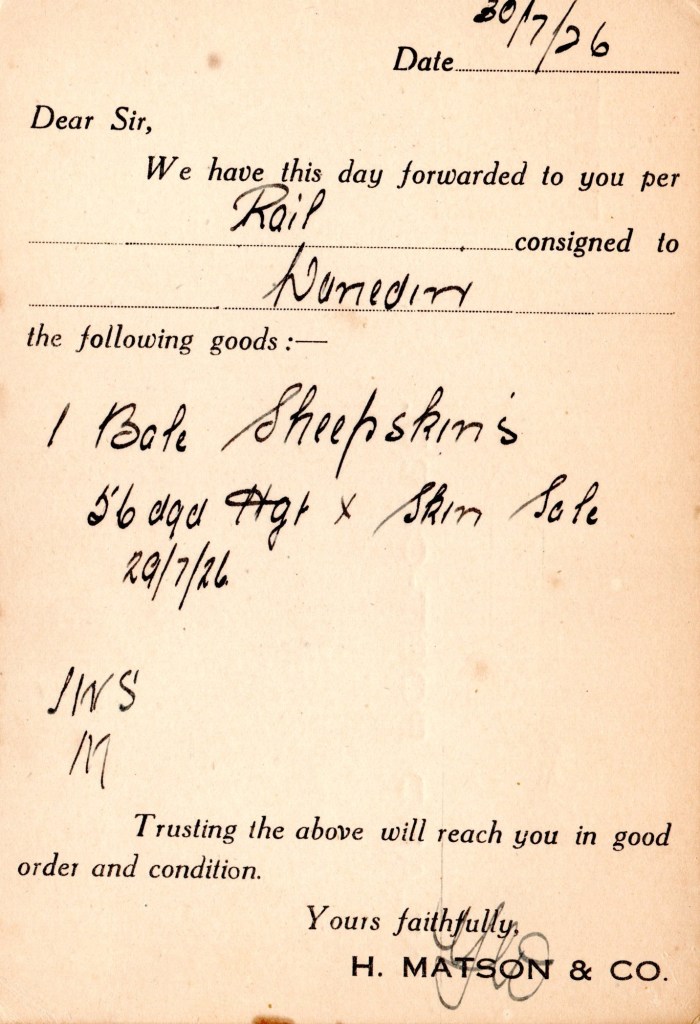 Date 30/7/26
Dear Sir,
We have this day forwarded to you per
Rail
consigned to
Dunedin
the following goods :—
1 Bale Sheepskins
56 dqd Hgt x Skin Sale
29/7/26
JWS
M
Trusting the above will reach you in good
order and condition.
Yours faithfully,
H. MATSON & CO.